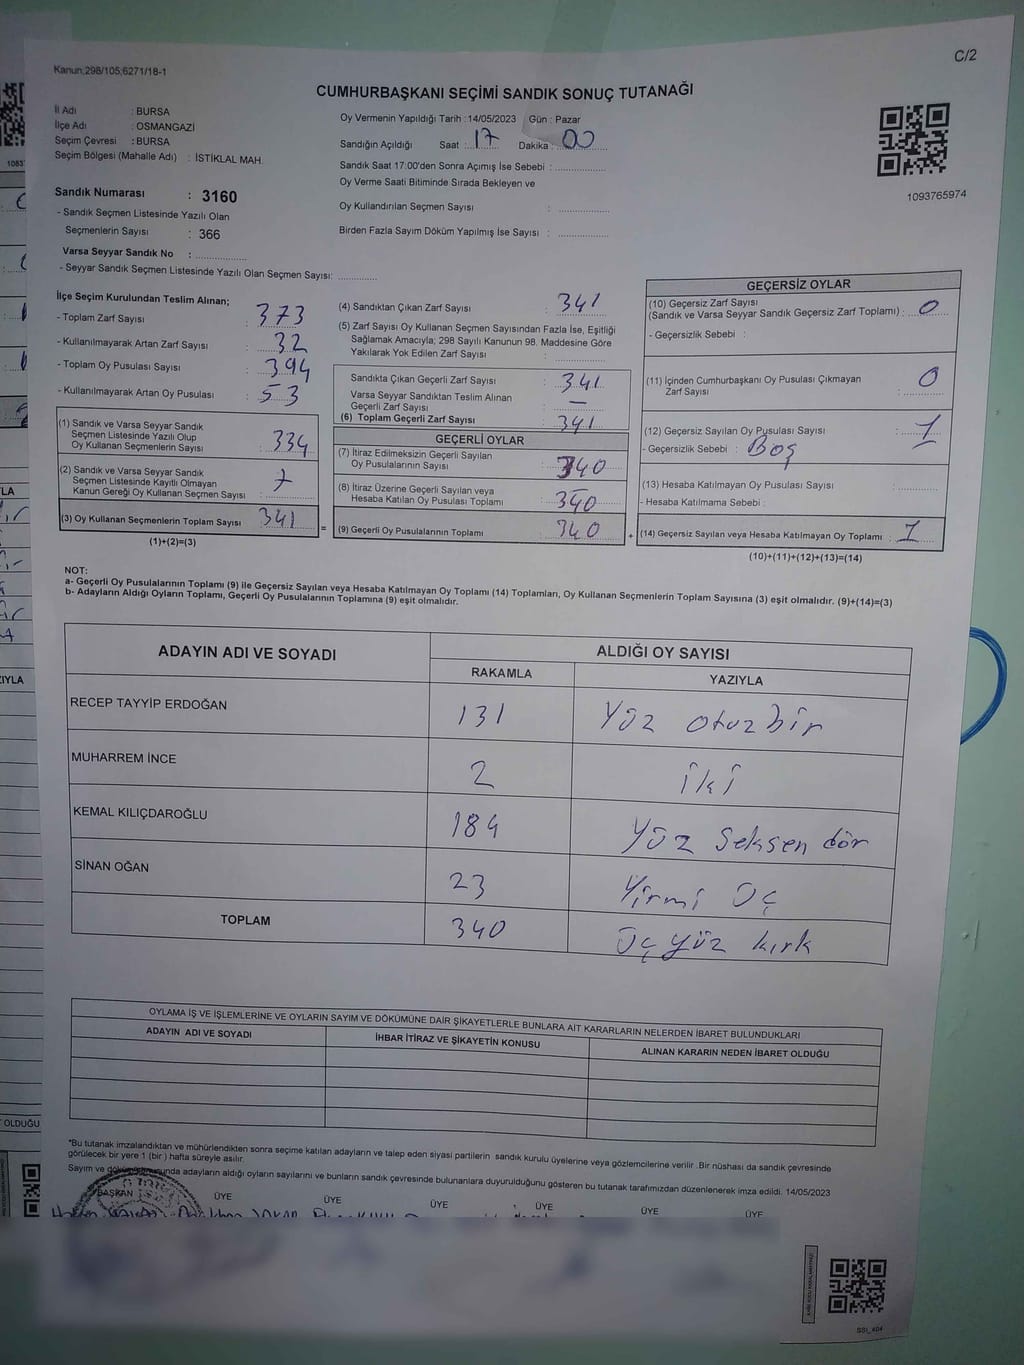 C/2
Kanun;298/105;6271/18-1
CUMHURBAŞKANI SEÇİMİ SANDIK SONUÇ TUTANAĞI
İl Adı : BURSA
İlçe Adı : OSMANGAZİ
Seçim Çevresi : BURSA
Seçim Bölgesi (Mahalle Adı) : İSTİKLAL MAH.
Sandık Numarası : 3160
- Sandık Seçmen Listesinde Yazılı Olan
Seçmenlerin Sayısı : 366
Varsa Seyyar Sandık No : ..............
- Seyyar Sandık Seçmen Listesinde Yazılı Olan Seçmen Sayısı: ............
Oy Vermenin Yapıldığı Tarih :14/05/2023 Gün : Pazar
Sandığın Açıldığı Saat : 17 Dakika : 00
Sandık Saat 17:00'den Sonra Açımış İse Sebebi : ..............
Oy Verme Saati Bitiminde Sırada Bekleyen ve
Oy Kullandırılan Seçmen Sayısı : ..............
Birden Fazla Sayım Döküm Yapılmış İse Sayısı : ..............
1093765974
İlçe Seçim Kurulundan Teslim Alınan;
- Toplam Zarf Sayısı : 373
- Kullanılmayarak Artan Zarf Sayısı : 32
- Toplam Oy Pusulası Sayısı : 394
- Kullanılmayarak Artan Oy Pusulası : 53
(1) Sandık ve Varsa Seyyar Sandık
Seçmen Listesinde Yazılı Olup
Oy Kullanan Seçmenlerin Sayısı : 334
(2) Sandık ve Varsa Seyyar Sandık
Seçmen Listesinde Kayıtlı Olmayan
Kanun Gereği Oy Kullanan Seçmen Sayısı : 7
(3) Oy Kullanan Seçmenlerin Toplam Sayısı : 341
(1)+(2)=(3)
(4) Sandıktan Çıkan Zarf Sayısı : 341
(5) Zarf Sayısı Oy Kullanan Seçmen Sayısından Fazla İse, Eşitliği
Sağlamak Amacıyla; 298 Sayılı Kanunun 98. Maddesine Göre
Yakılarak Yok Edilen Zarf Sayısı : ..............
Sandıkta Çıkan Geçerli Zarf Sayısı : 341
Varsa Seyyar Sandıktan Teslim Alınan
Geçerli Zarf Sayısı : —
(6) Toplam Geçerli Zarf Sayısı : 341
GEÇERLİ OYLAR
(7) İtiraz Edilmeksizin Geçerli Sayılan
Oy Pusulalarının Sayısı : 340
(8) İtiraz Üzerine Geçerli Sayılan veya
Hesaba Katılan Oy Pusulası Toplamı : 340
= (9) Geçerli Oy Pusulalarının Toplamı : 340 +
GEÇERSİZ OYLAR
(10) Geçersiz Zarf Sayısı
(Sandık ve Varsa Seyyar Sandık Geçersiz Zarf Toplamı) : 0
- Geçersizlik Sebebi :
(11) İçinden Cumhurbaşkanı Oy Pusulası Çıkmayan
Zarf Sayısı : 0
(12) Geçersiz Sayılan Oy Pusulası Sayısı : 1
- Geçersizlik Sebebi : Boş
(13) Hesaba Katılmayan Oy Pusulası Sayısı : ..............
- Hesaba Katılmama Sebebi :
(14) Geçersiz Sayılan veya Hesaba Katılmayan Oy Toplamı : 1
(10)+(11)+(12)+(13)=(14)
NOT:
a- Geçerli Oy Pusulalarının Toplamı (9) ile Geçersiz Sayılan veya Hesaba Katılmayan Oy Toplamı (14) Toplamları, Oy Kullanan Seçmenlerin Toplam Sayısına (3) eşit olmalıdır. (9)+(14)=(3)
b- Adayların Aldığı Oyların Toplamı, Geçerli Oy Pusulalarının Toplamına (9) eşit olmalıdır.
ADAYIN ADI VE SOYADI ALDIĞI OY SAYISI
RAKAMLA YAZIYLA
RECEP TAYYİP ERDOĞAN 131 Yüz otuz bir
MUHARREM İNCE 2 iki
KEMAL KILIÇDAROĞLU 184 Yüz seksen dör
SİNAN OĞAN 23 Yirmi üç
TOPLAM 340 üç yüz kırk
OYLAMA İŞ VE İŞLEMLERİNE VE OYLARIN SAYIM VE DÖKÜMÜNE DAİR ŞİKAYETLERLE BUNLARA AİT KARARLARIN NELERDEN İBARET BULUNDUKLARI
ADAYIN ADI VE SOYADI İHBAR İTİRAZ VE ŞİKAYETİN KONUSU ALINAN KARARIN NEDEN İBARET OLDUĞU
*Bu tutanak imzalandıktan ve mühürlendikten sonra seçime katılan adayların ve talep eden siyasi partilerin sandık kurulu üyelerine veya gözlemcilerine verilir. Bir nüshası da sandık çevresinde
görülecek bir yere 1 (bir ) hafta süreyle asılır.
Sayım ve dökümü sonunda adayların aldığı oyların sayılarını ve bunların sandık çevresinde bulunanlara duyurulduğunu gösteren bu tutanak tarafımızdan düzenlenerek imza edildi. 14/05/2023
BAŞKAN ÜYE ÜYE ÜYE ÜYE ÜYE ÜYE